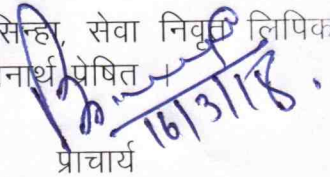 सिन्हा, सेवा निवृत्त लिपिक
नार्थ प्रेषित ।
16/3/18.
प्राचार्य